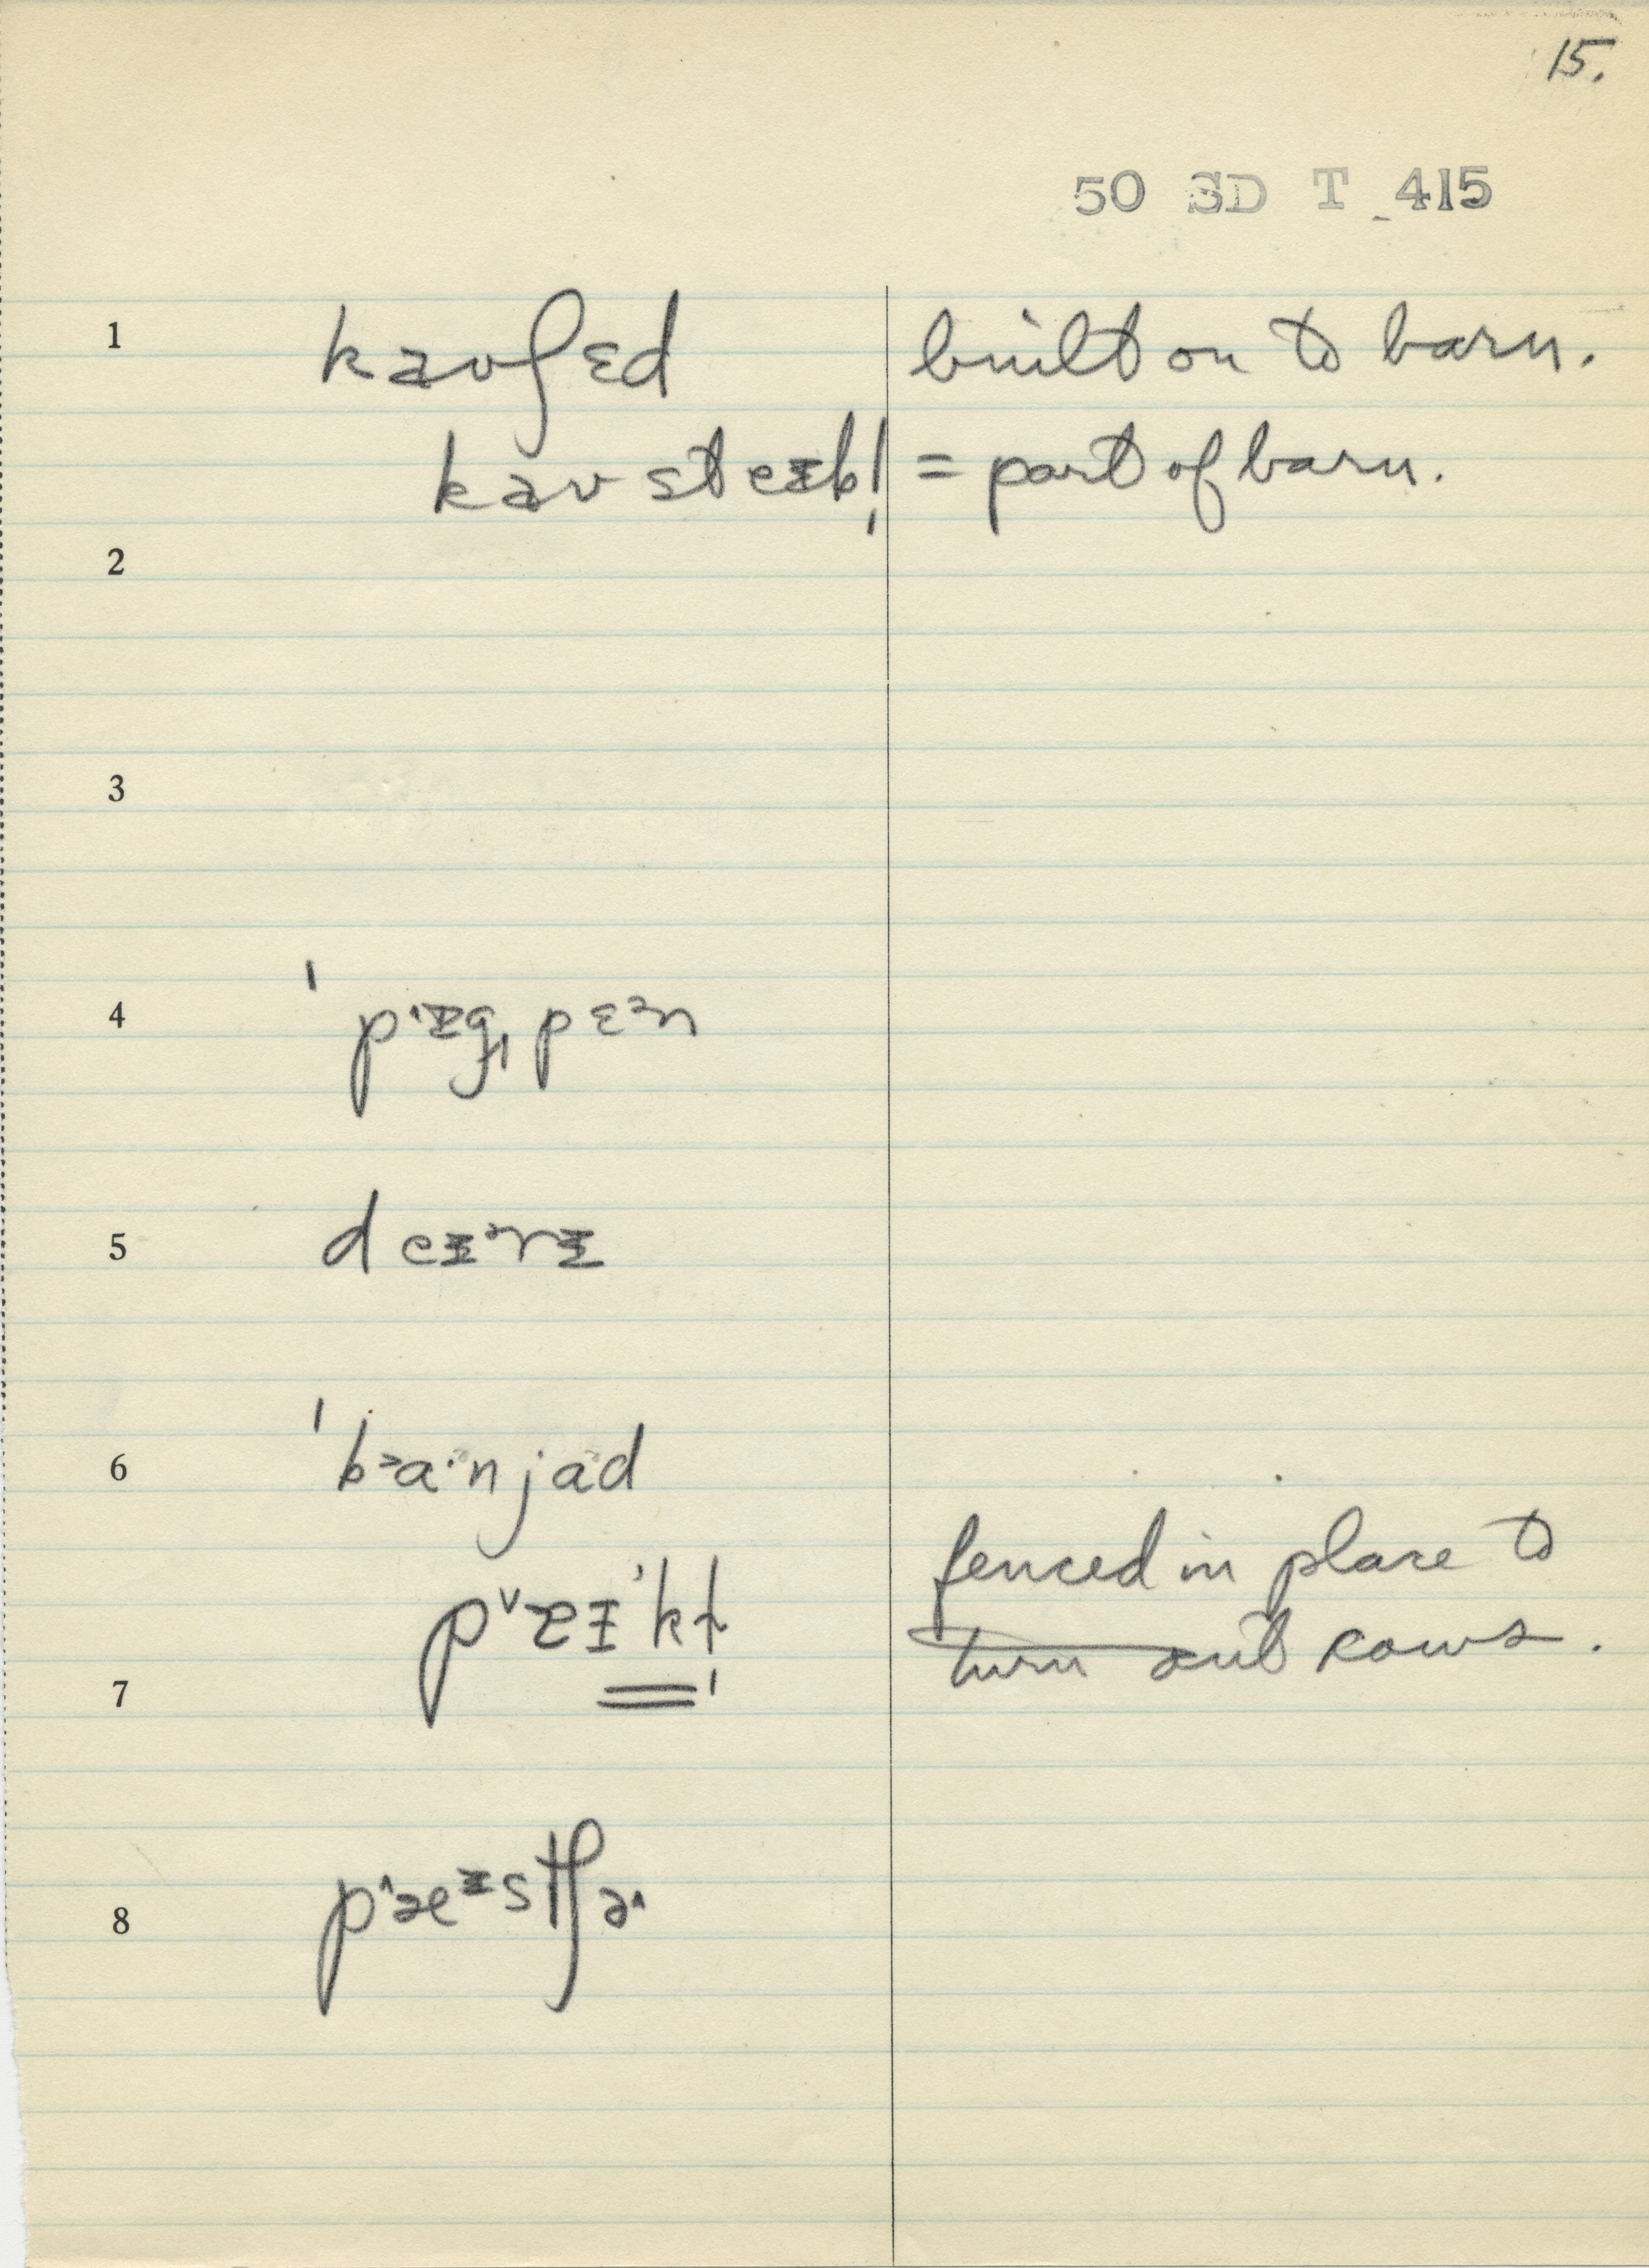 15.
50 SD T 415
1 kaʊʃɛd built on to barn.
kaʊ steɪbl̩ = part of barn.
2
3
4 ˈpɪgˌpɛᵊn
5 deɪᵊrɪ
6 ˈbɑˑnjɑd
fenced in place to
turn out cows.
7
8 pæᶦstʃə